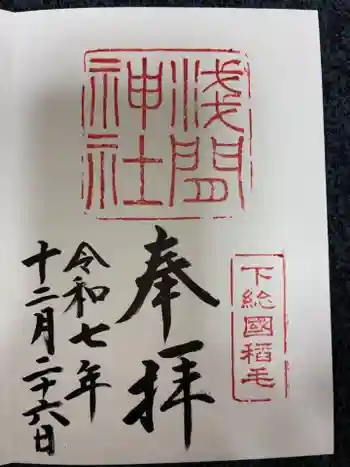 浅間
神社
下総國稲毛
奉拝
令和七年
十二月二十六日